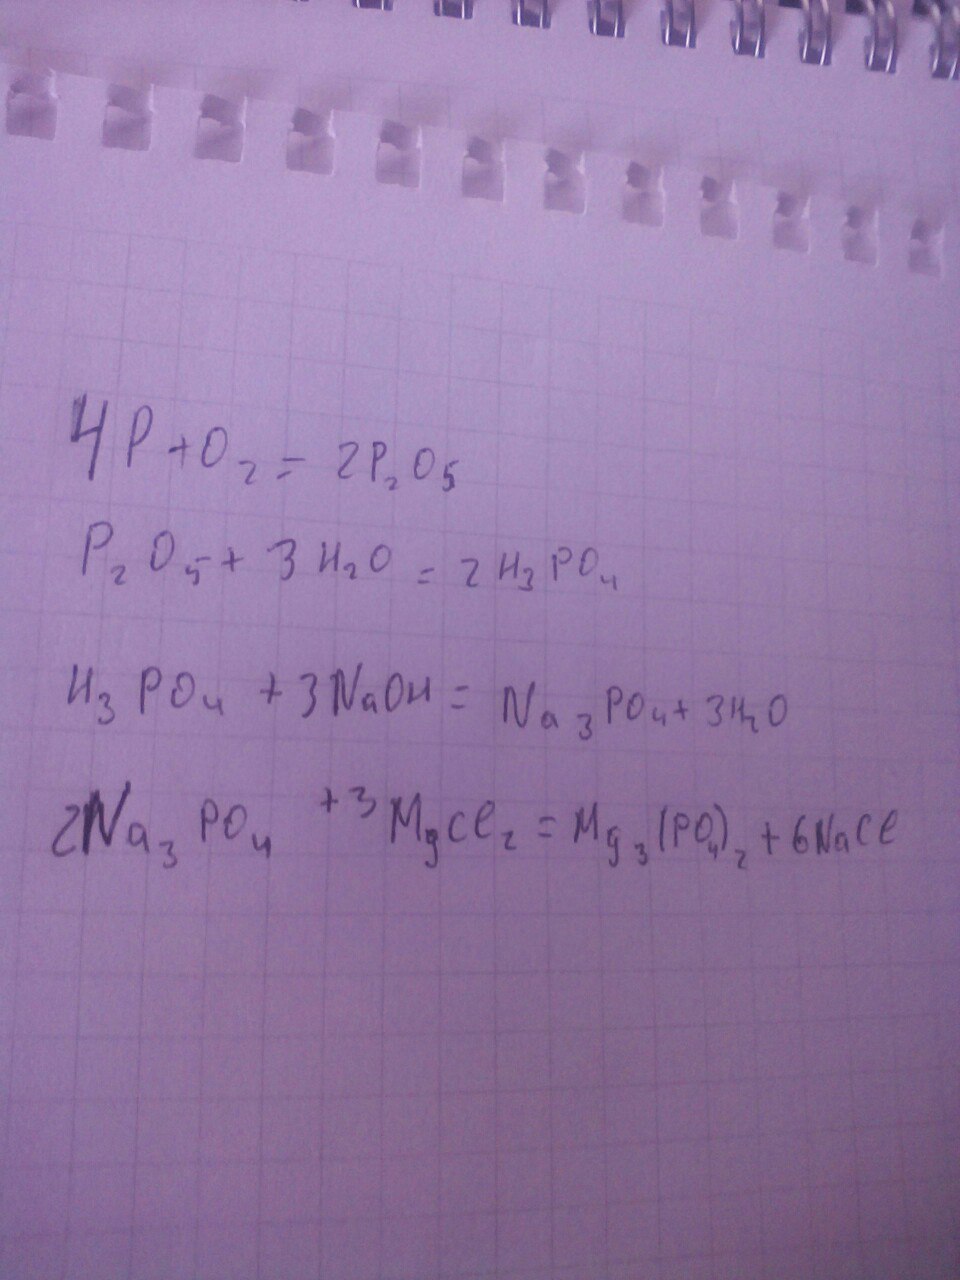 4P + O₂ = 2P₂O₅
P₂O₅ + 3H₂O = 2H₃PO₄
H₃PO₄ + 3NaOH = Na₃PO₄ + 3H₂O
2Na₃PO₄ + 3MgCl₂ = Mg₃(PO₄)₂ + 6NaCl